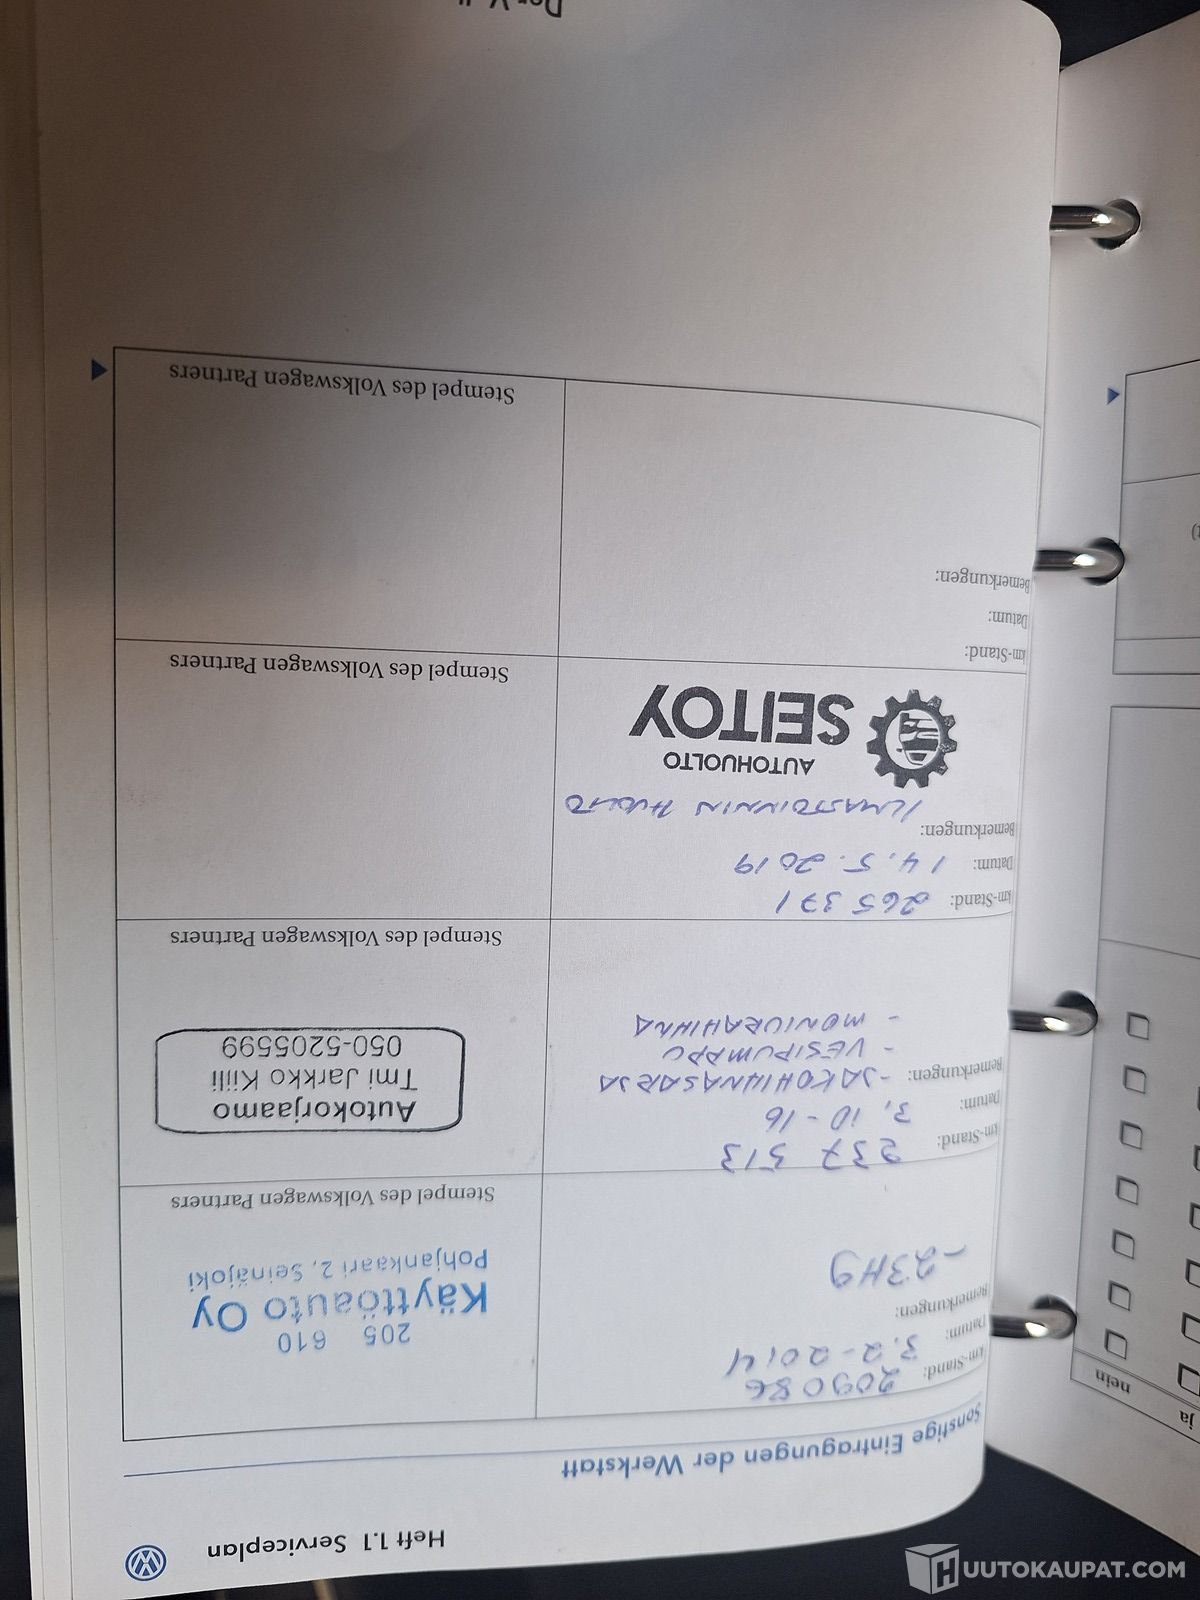 Heft 1.1 Serviceplan
Sonstige Eintragungen der Werkstatt
km-Stand: 209086
Datum: 3.2-2014
Bemerkungen:
-23H9
205 610
Käyttöauto Oy
Pohjankaari 2, Seinäjoki
Stempel des Volkswagen Partners
km-Stand: 237 513
Datum: 3, 10-16
Bemerkungen: -JAKOHIHNASARJA
- VESIPUMPPU
- MONIURAHIHNA
Autokorjaamo
Tmi Jarkko Kiili
050-5205599
Stempel des Volkswagen Partners
km-Stand: 265 371
Datum: 14.5.2019
Bemerkungen:
ILMASTOINNIN HUOLTO
AUTOHUOLTO
SEITOY
Stempel des Volkswagen Partners
km-Stand:
Datum:
Bemerkungen:
Stempel des Volkswagen Partners
ja
nein
HUUTOKAUPAT.COM